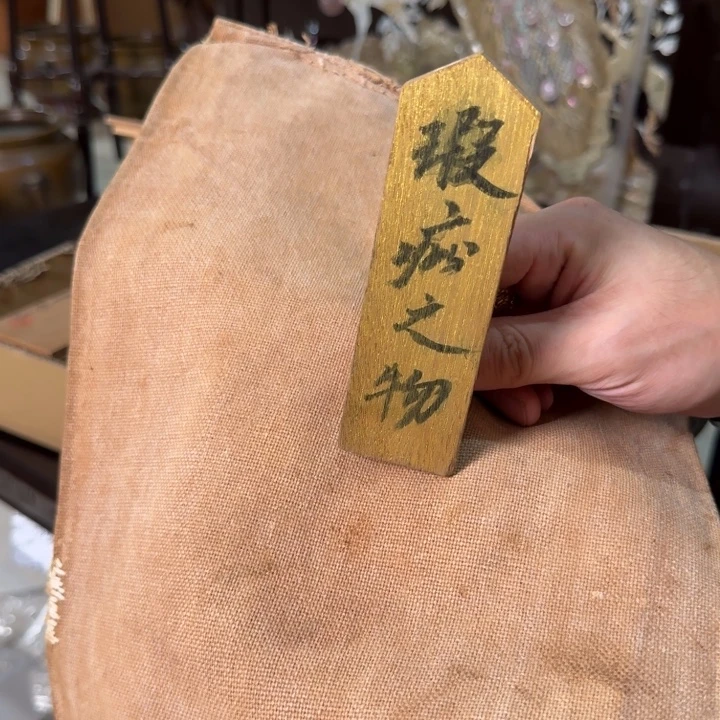 瑕疵之物